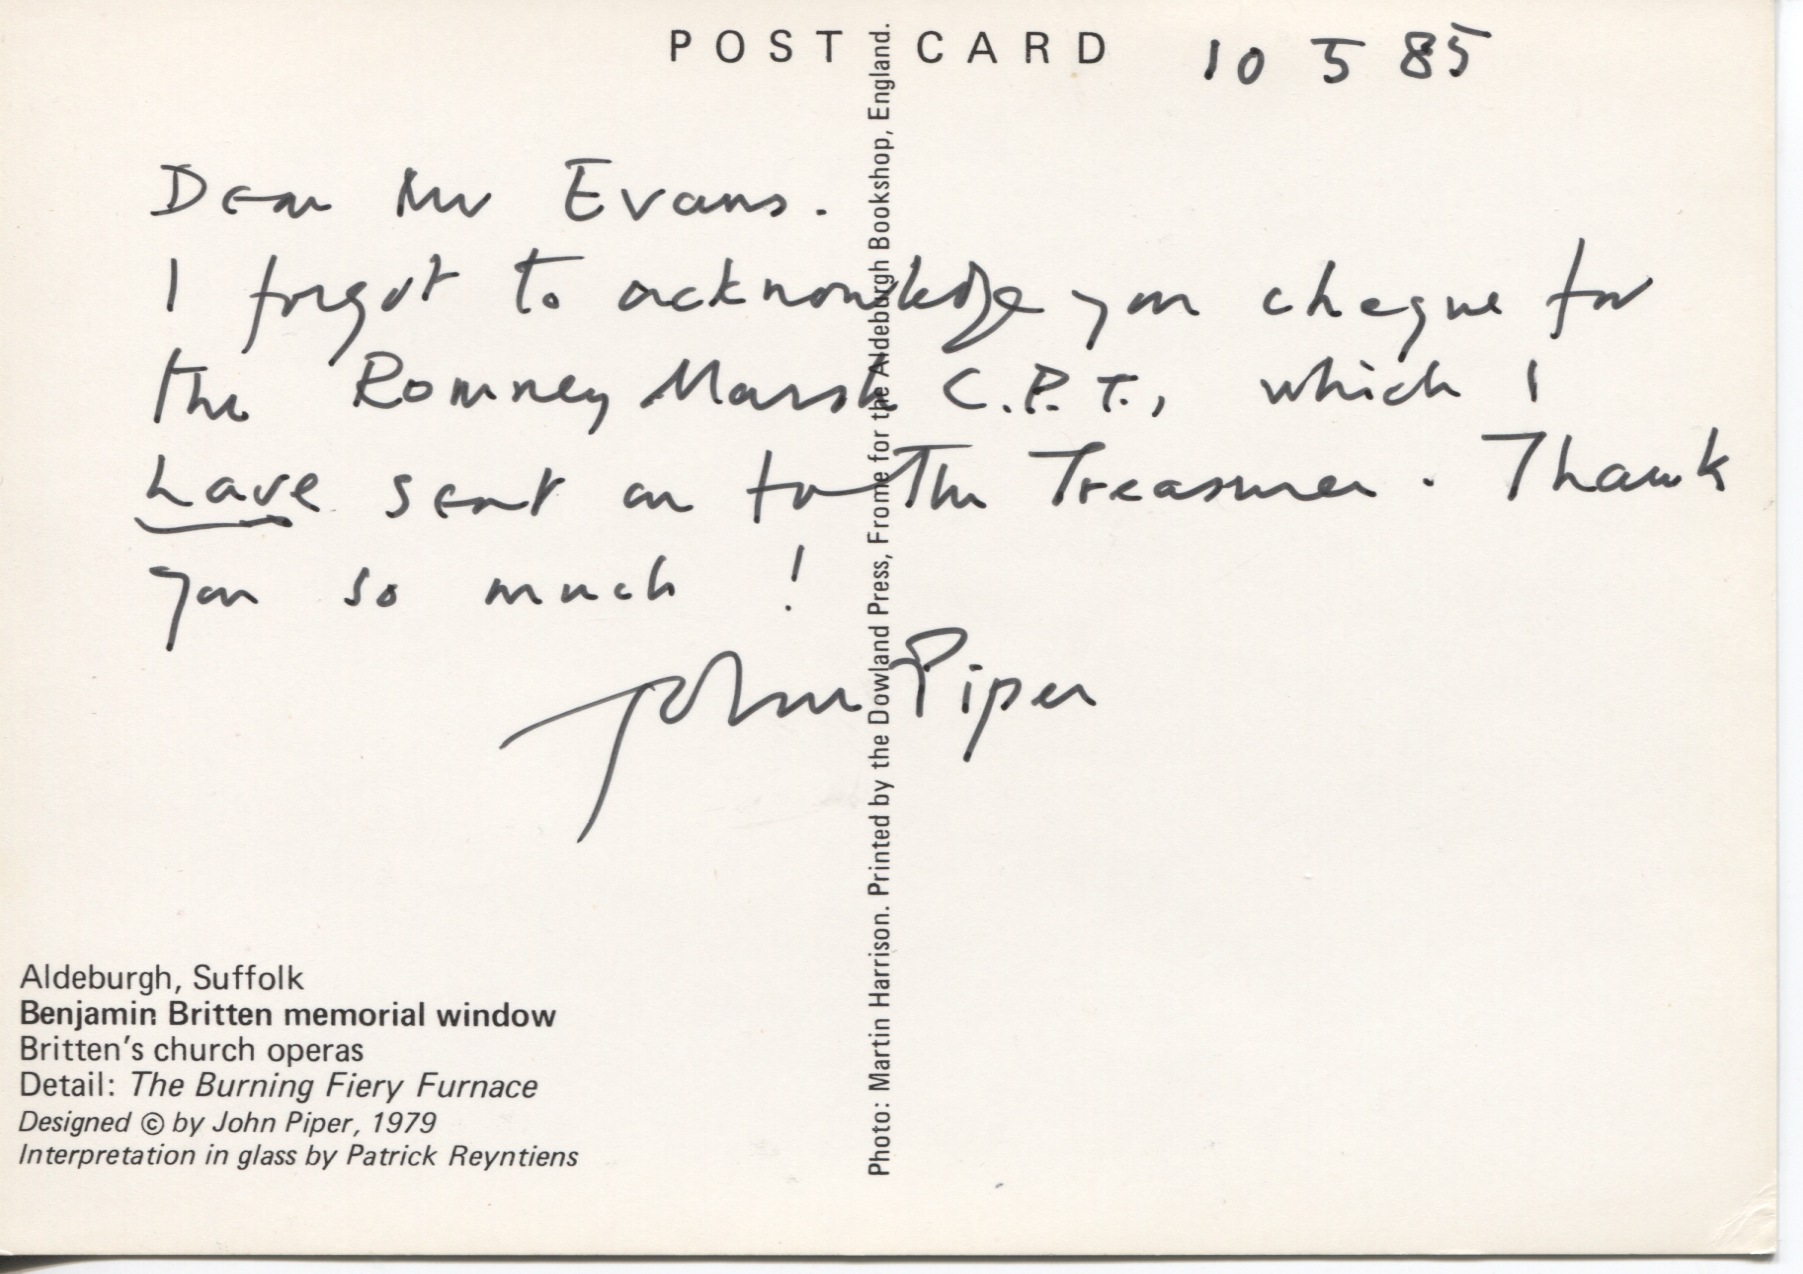 POST CARD
10 5 85
Dear Mr Evans.
I forgot to acknowledge your cheque for
the Romney Marsh C.P.T., which I
have sent on to The Treasurer. Thank
you so much !
John Piper
Aldeburgh, Suffolk
Benjamin Britten memorial window
Britten's church operas
Detail: The Burning Fiery Furnace
Designed © by John Piper, 1979
Interpretation in glass by Patrick Reyntiens
Photo: Martin Harrison. Printed by the Dowland Press, Frome for the Aldeburgh Bookshop, England.